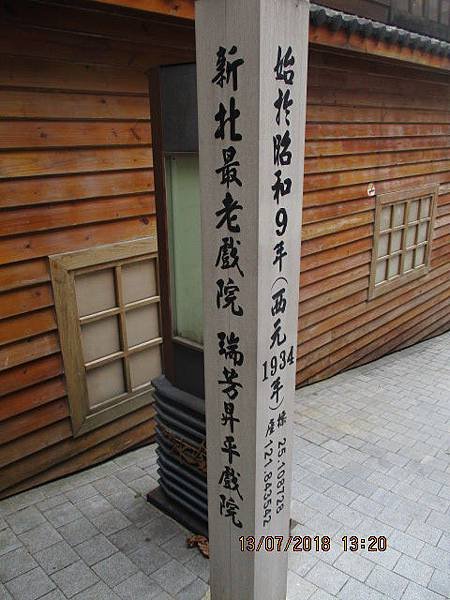 新北最老戲院 瑞芳昇平戲院
始於昭和9年(西元1934年)座標 25.108728 121.843542
13/07/2018 13:20